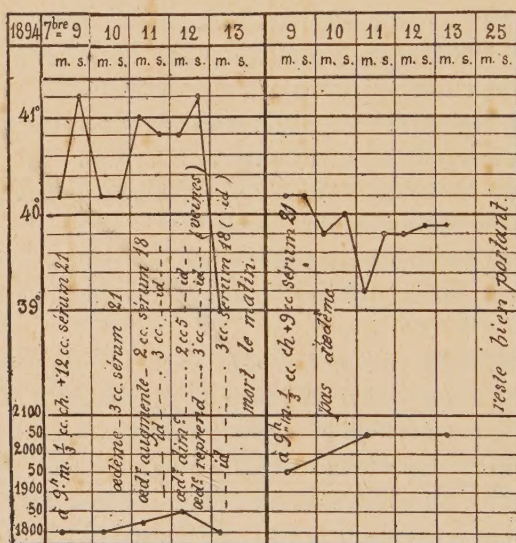 1894 7bre = 9 10 11 12 13 9 10 11 12 13 25
m. s. m. s. m. s. m. s. m. s. m. s. m. s. m. s. m. s. m. s.
41°
40°
39°
2100
50
2000
50
1900
50
1800
à 9h m. 1/3 cc. ch. + 12 cc. sérum 21
œdème - 3 cc. sérum 21
œde augmente - 2 cc. sérum 18
--- id ----- 3 cc. -- id ---
œde dimt ----- 2 cc5 --- id --
œde reprend --- 3 cc. --- id --- (veines)
--- id ----- 3 cc. sérum 18 ( id )
mort le matin.
à 9h m. 1/3 cc. ch. + 9 cc sérum 21
pas d'œdème
reste bien portant.